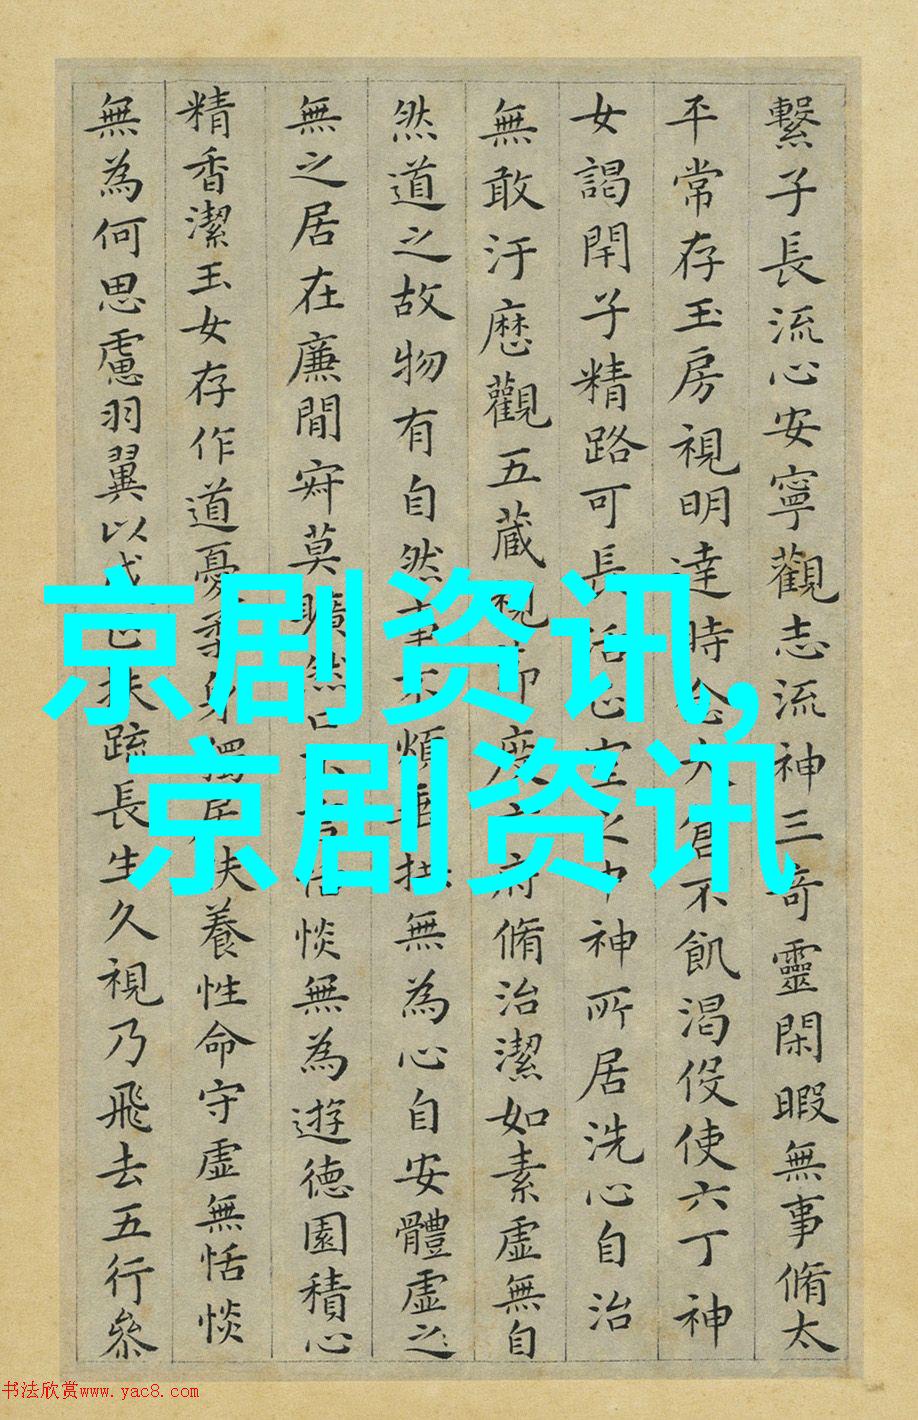 繫子長流心安寧觀志流神三奇靈閑暇無事脩太
平常存玉房視明達時念大倉不飢渴伇使六丁神
女謁閇子精路可長活正室之中神所居洗心自治
無敢汙歷觀五藏視節度六府脩治潔如素虛無自
然道之故物有自然事不煩垂拱無為心自安體虛之
無之居在廉間寂莫曠然口不言恬惔無為遊德園積心
精香潔玉女存作道憂柔身獨居扶養性命守虛無恬惔
無為何思慮羽翼以成正扶疏長生久視乃飛去五行叅
京剧资讯,
京剧资讯
书法欣赏www.yac8.com